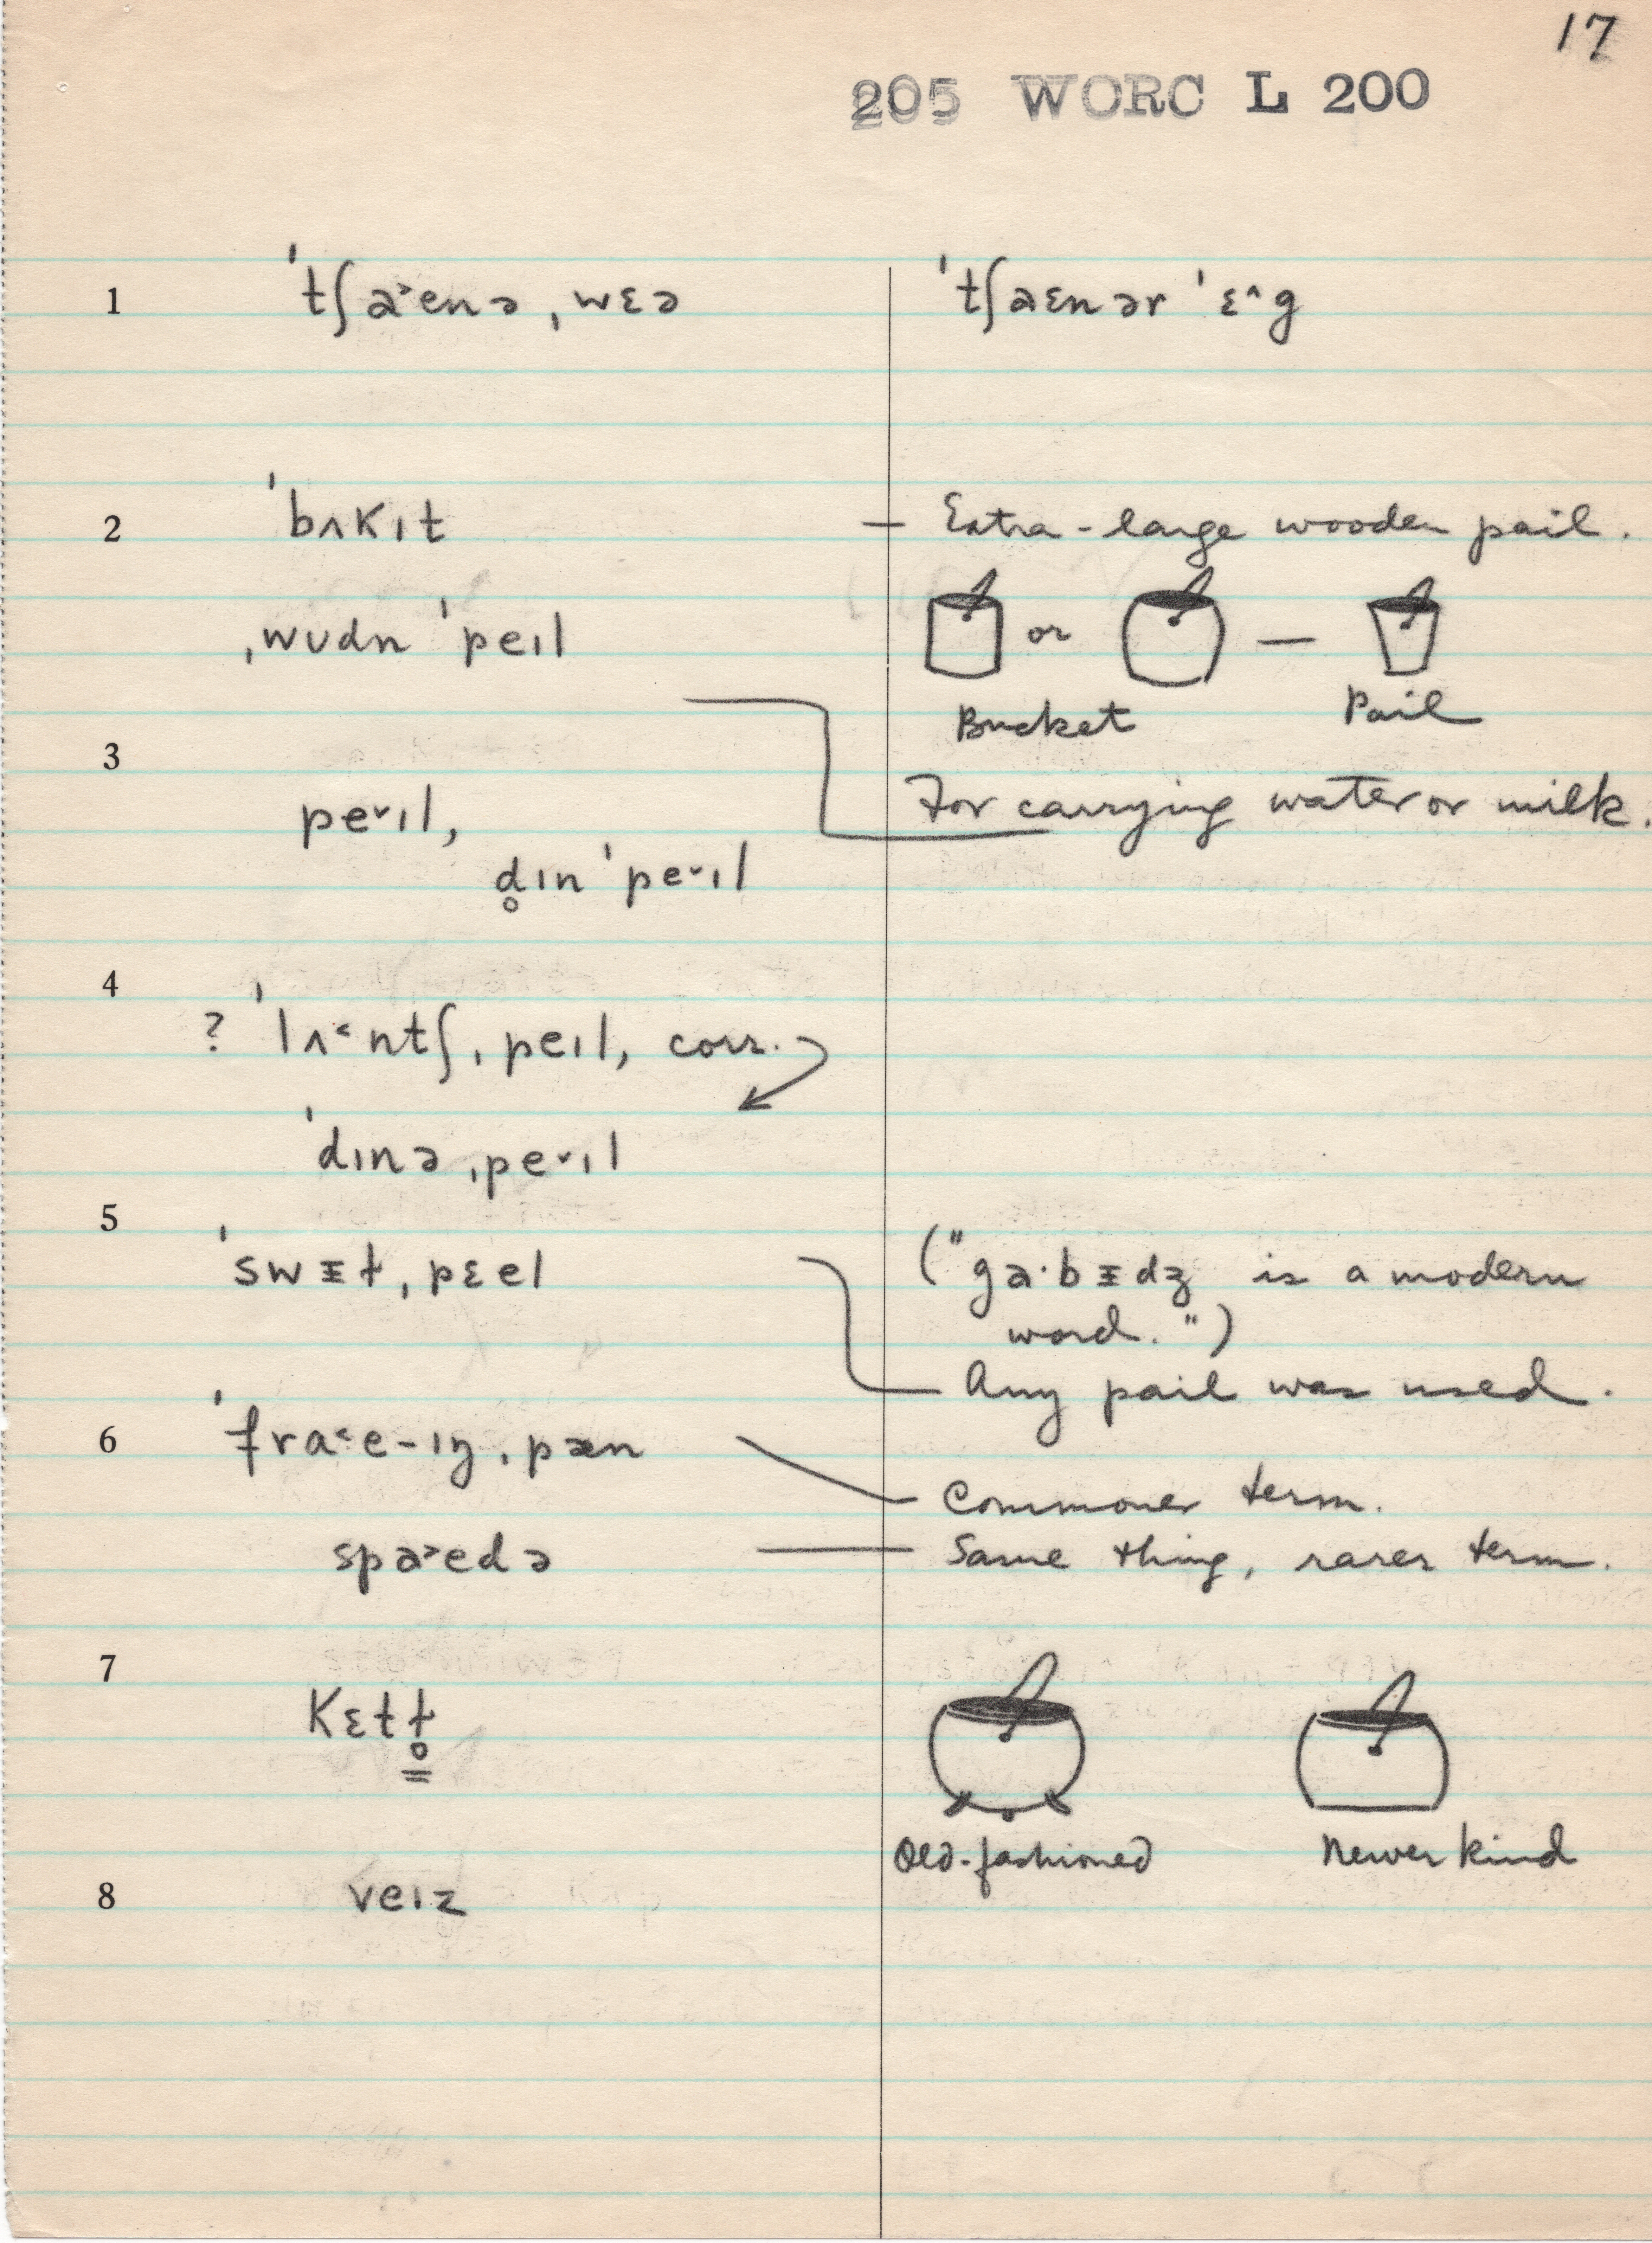 17
205 WORC L 200
1 ˈtʃa˃enə ˌwɛə ˈtʃaɛnər ˈɛ^g
2 ˈbʌkɪt — Extra-large wooden pail.
ˌwʊdn ˈpeɪl or —
Bucket Pail
3
For carrying water or milk.
pe˅ɪl,
d̥ɪn ˈpe˅ɪl
4
? ˈlʌ˂ntʃ ˌpeɪl, corr.
ˈdɪnə ˌpe˅ɪl
5
ˈswᵻɫ ˌpɛel ("ga·bᵻdʒ is a modern
word.")
Any pail was used.
6 ˈfra˂e-ɪŋ ˌpæn
Commoner term.
spa˃edə — Same thing, rarer term.
7
kɛtɫ̥
Old-fashioned Newer kind
8 veɪz